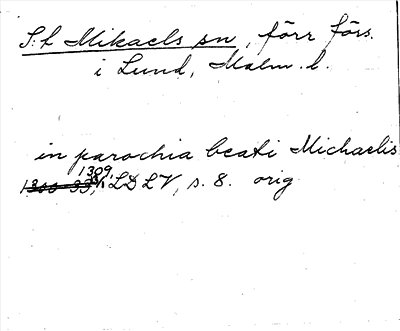 S:t Mikaels sn, förr förs.
i Lund, Malm. l.
in parochia beati Michaelis
1309,
LDLV, s. 8. orig